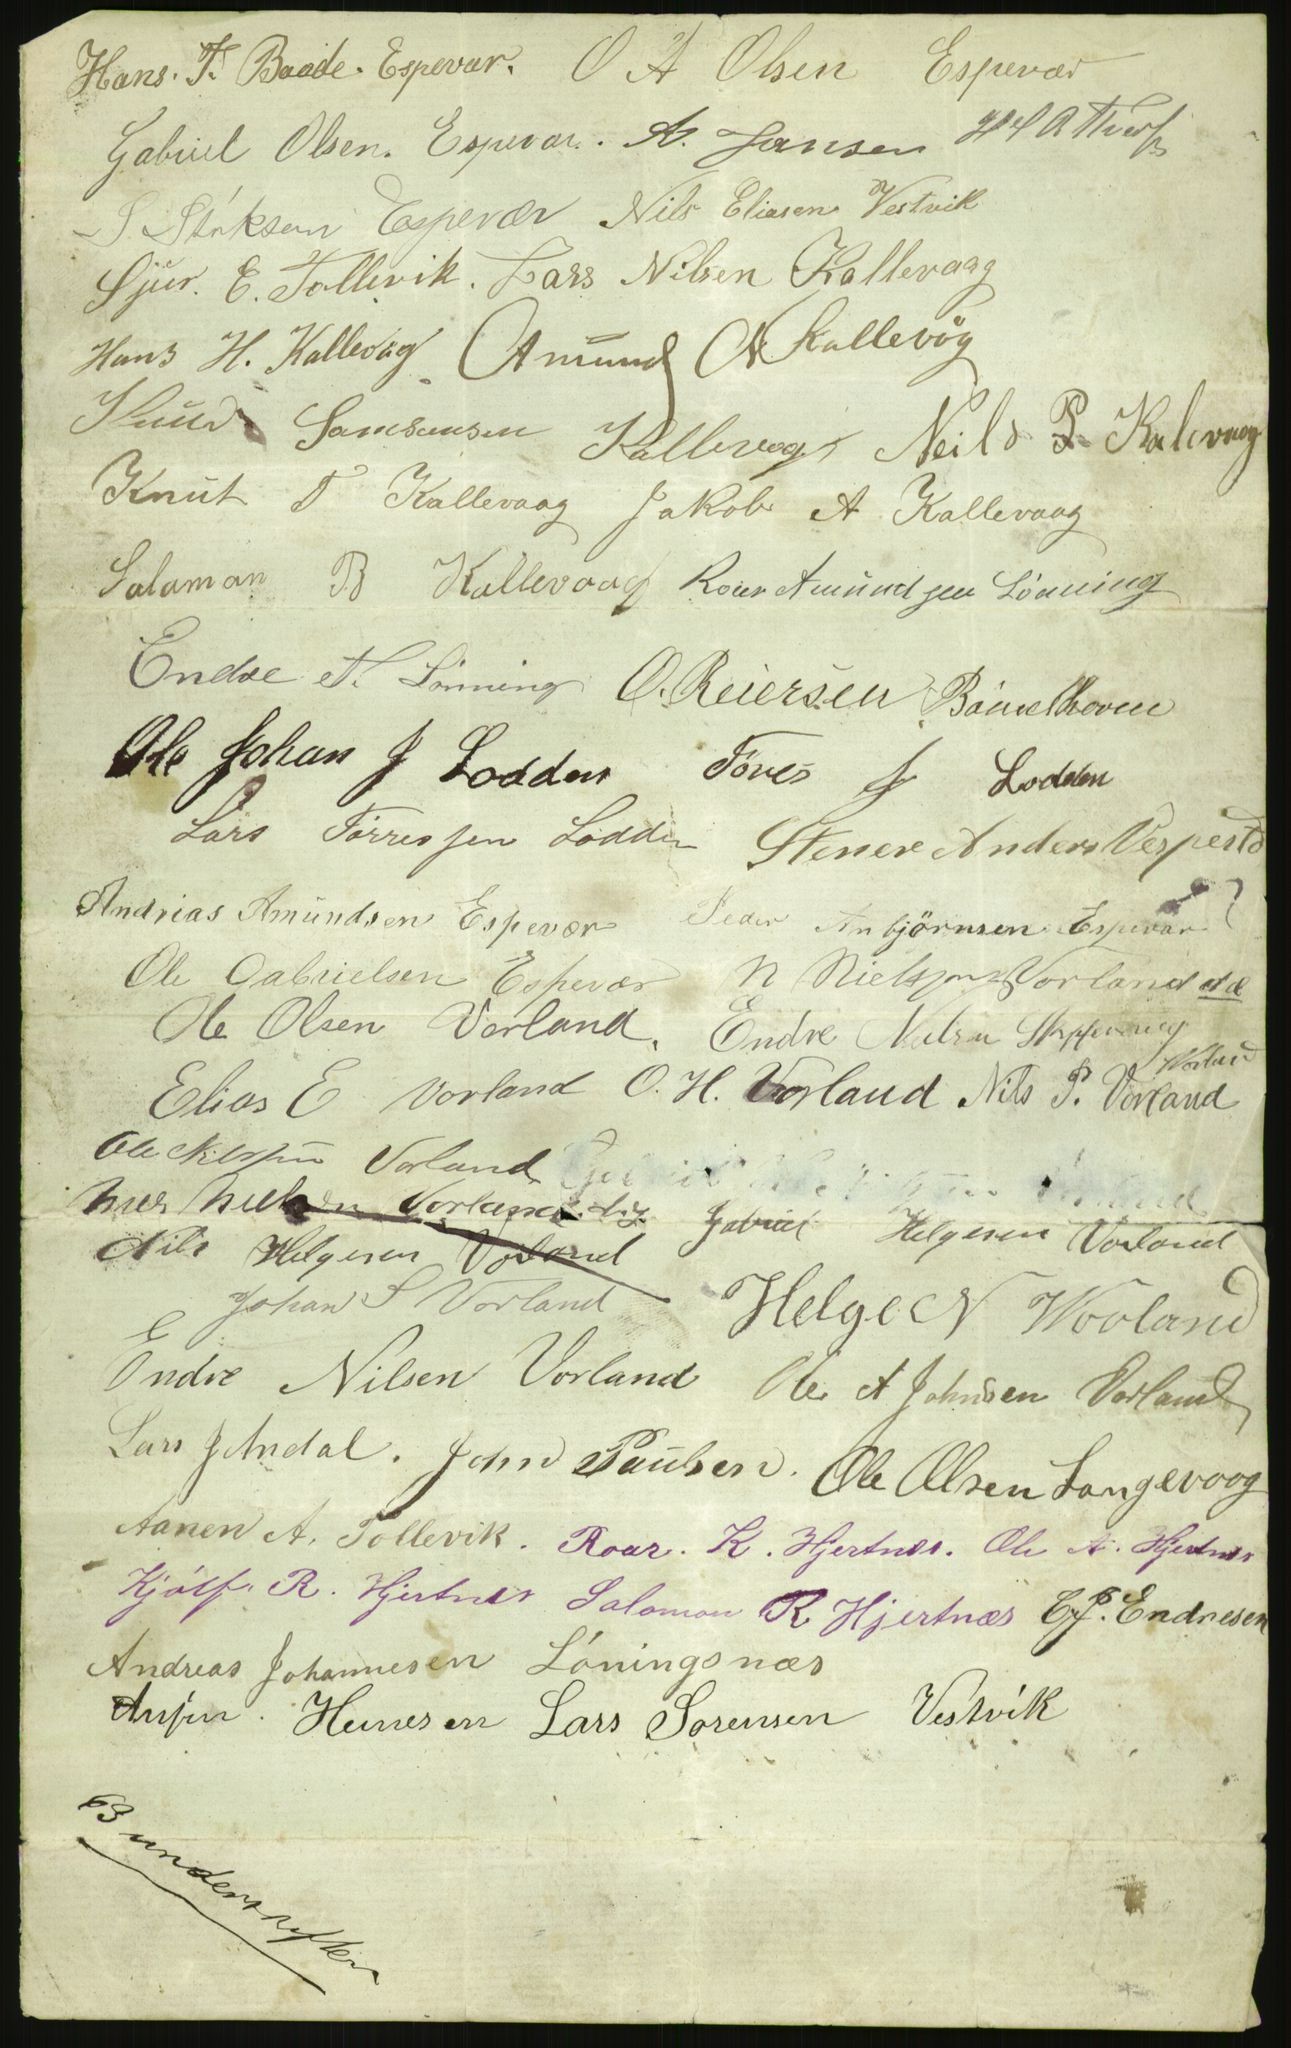 Hans. T. Baade. Espevær. O A Olsen Espevær
Gabriel Olsen. Espevær. A. Jansen
S Sörksen Espevær Nils Eliasen Vestvik
Sjur. E. Tollevik. Lars Nilsen Kallevaag
Hans H. Kallevåg Amund A Kallevåg
Knud Samsonsen Kallevog Neils P. Kalevaag
Knut T Kallevaag Jakob A Kallevaag
Salaman B Kallevaag Roar Amundsen Lönning
Endre A. Lönning O. Reiersen Bömelhoven
Ole Johan J Lodden Töres J Lodden
Lars Törresen Lodden Stener Anders Vespestd
Andrias Amundsen Espevær Peder Anbjörnsen Espevær
Ole Gabrielsen Espevær N Nielsen Vorland
Ole Olsen Vorland. Endre Nielsen
Vorland
Elias E Vorland O. H. Vorland Nils P. Vorland
Ole Nilsen Vorland
Nils Nielsen Vorland Gabriel Helgesen Vorland
Nils Helgesen Vorland
Johan S Vorland Helge N Worland
Endre Nilsen Vorland Ole A Johnsen Vorland
Lars J Andal. John Paulsen. Ole Olsen Langevaag
Aanen A. Tollevik. Roar. K. Hjertnæs. Ole A. Hjertnæs
Kjölf. R. Hjertnæs Salomon R Hjertnæs E J. Endresen
Andreas Johannesen Löningsnæs
Anfin. Hansen Lars Sorensen Vestvik
63 underskrifter